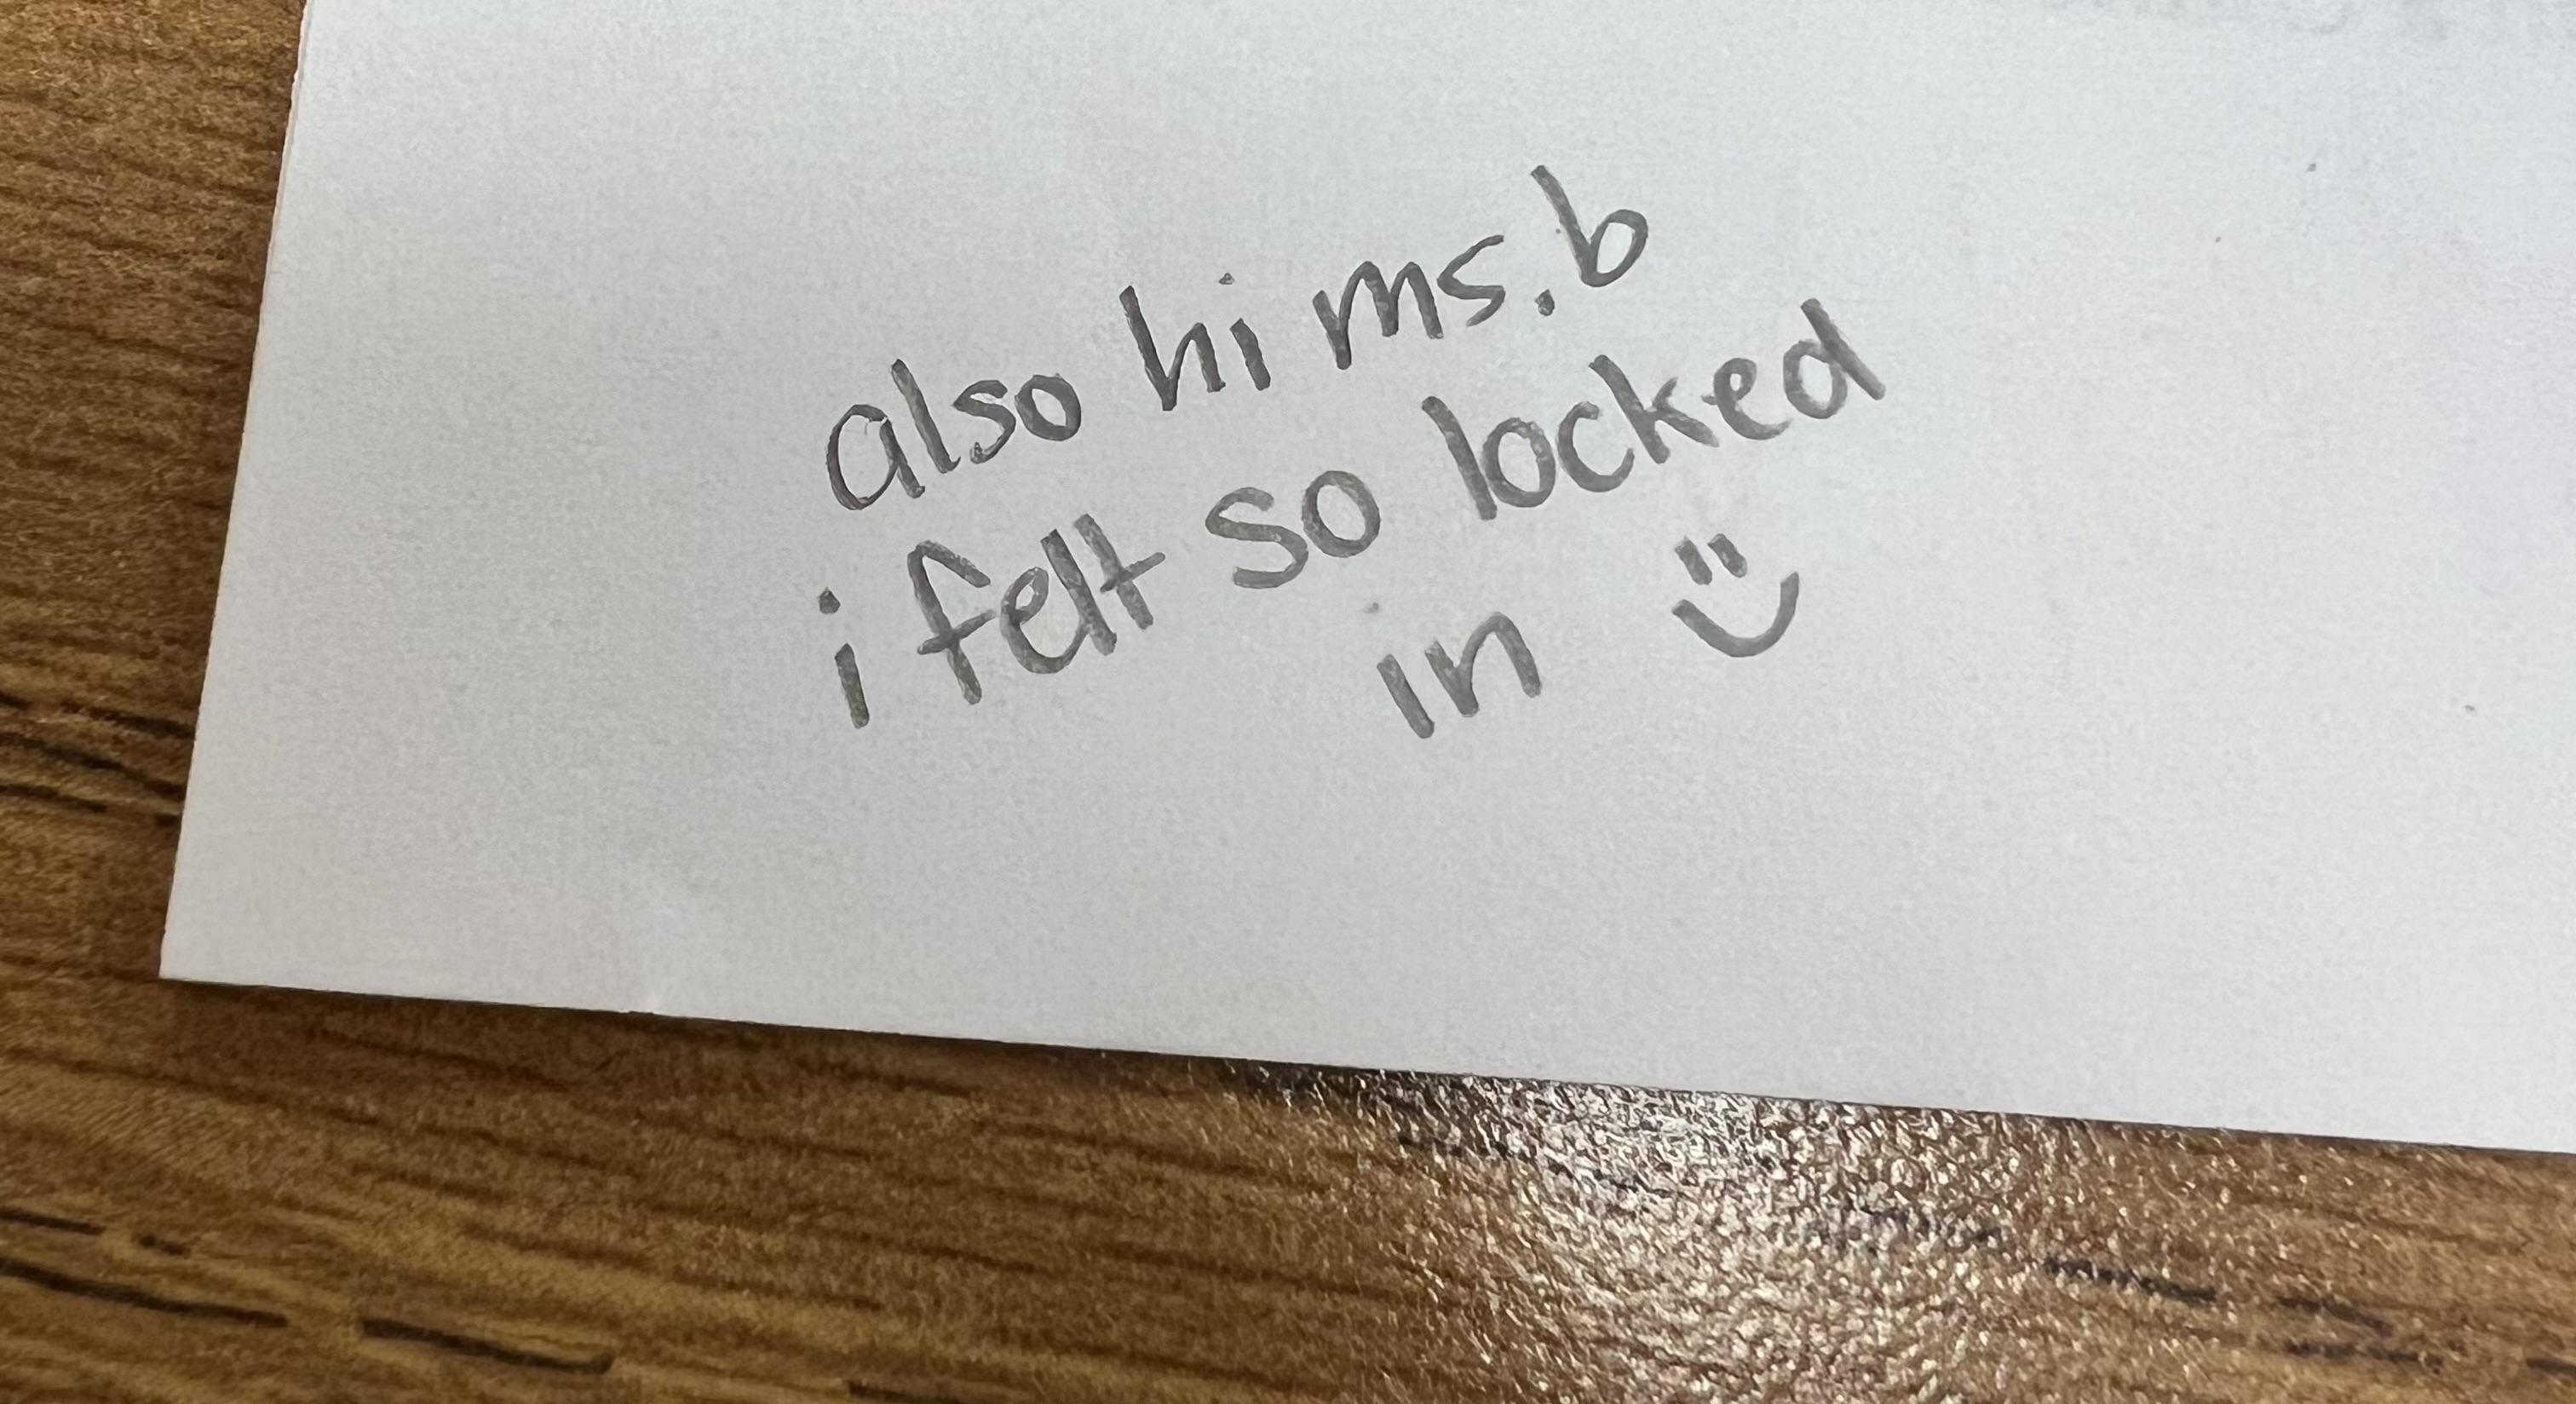 also hi ms. b
i felt so locked
in